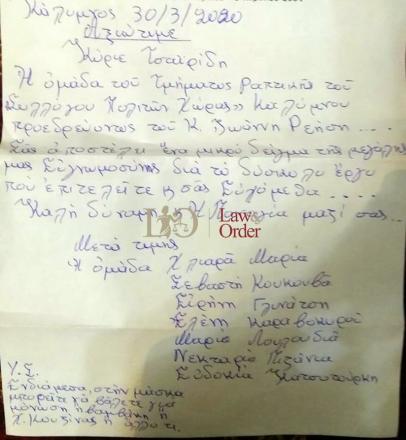 Κάλυμνος 30/3/2020
Αξιότιμε
Κύριε Τσαϊρίδη
Η ὁμάδα τοῦ Τμήματος Ραπτικῆς τοῦ
Συλλόγου Πολιτῶν Χώρας» Καλύμνου
προεδρεύοντος τοῦ Κ. Ἰωάννη Ρεΐση ....
Σᾶς ἀποστέλει ἕνα μικρό δεῖγμα τῆς μεγάλης
μας Εὐγνωμοσύνης διά τό δύσκολο ἔργο
πού ἐπιτελεῖτε κ σᾶς Εὐχόμεθα ....
Καλή δύναμη κ Ἡ Παναγία μαζί σας...
Law & Order
Μετά τιμῆς
Ἡ ὁμάδα Χλιαρᾶ Μαρία
Σεβαστή Κουκουβᾶ
Εἰρήνη Γλυνάτση
Ελένη Καραβοκυροῦ
Μαρία Λουλουδιᾶ
Νεκταρία
Εὐδοκία
Υ.Σ.
Ενδιάμεσα, στήν μάσκα
μπορεῖτε νά βάλετε γιά
μόνωση, ἤ βαμβάκι ἤ
Χ. Κουζίνας ἤ ἄλλο τι.